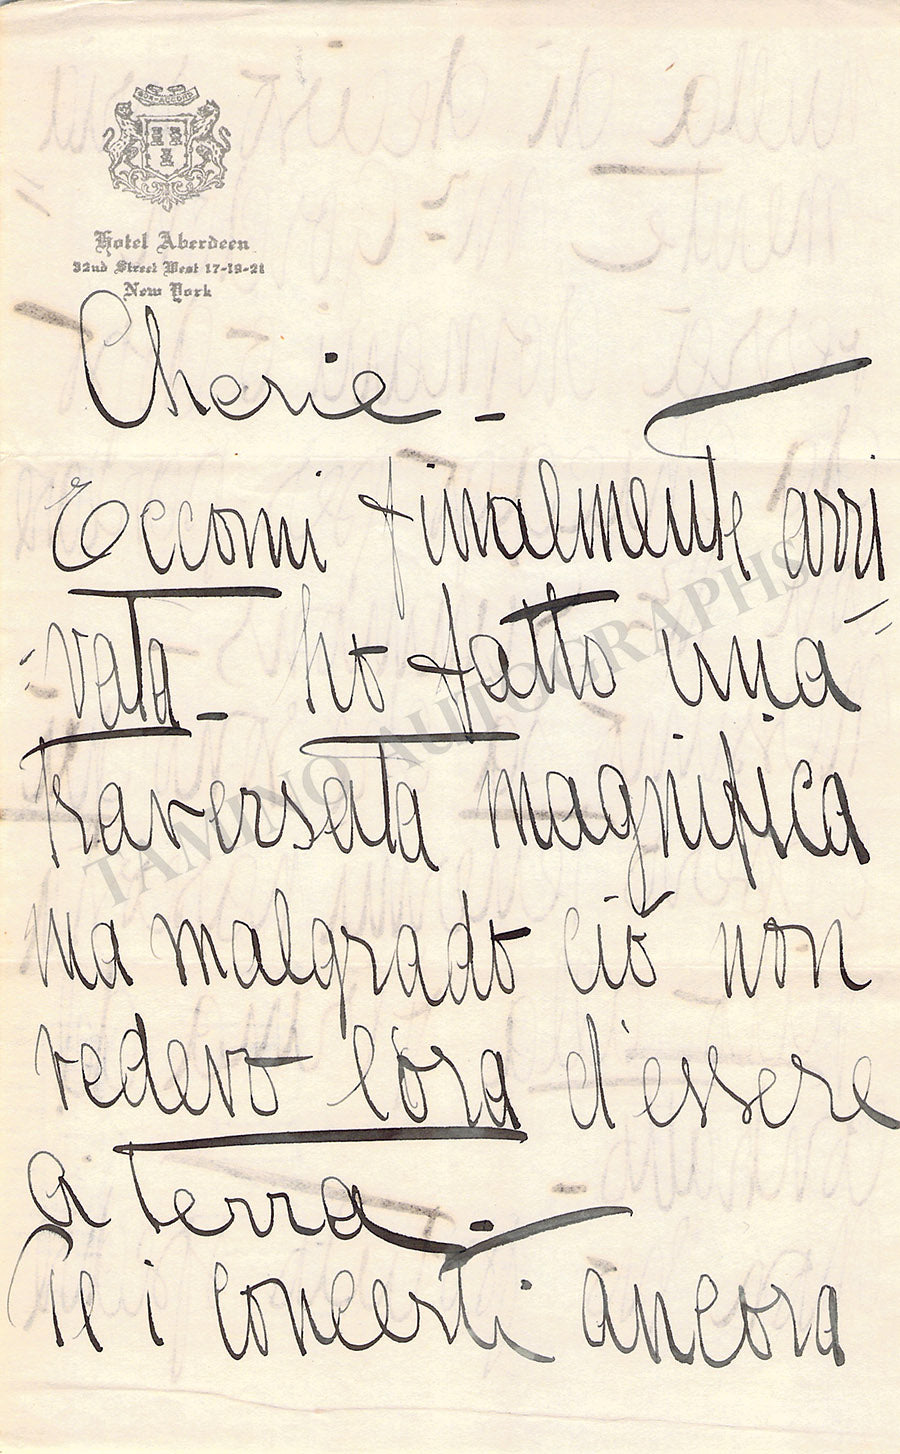 BON-ACCORD
Hotel Aberdeen
32nd Street West 17-19-21
New York
Cherie -
Eccomi finalmente arri
-vata - ho fatto una
traversata magnifica
ma malgrado ciò non
vedevo l'ora d'essere
a terra -
i concerti ancora
TAMINO AUTOGRAPHS